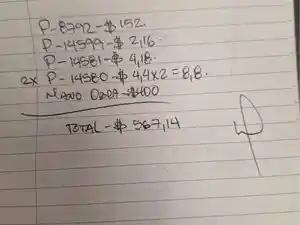 P-8792-$152.
P-14599-$2,16.
P-14581-$4,18.
2x P-14580-$4,4x2=8,8.
MANO OBRA-$400
TOTAL-$567,14